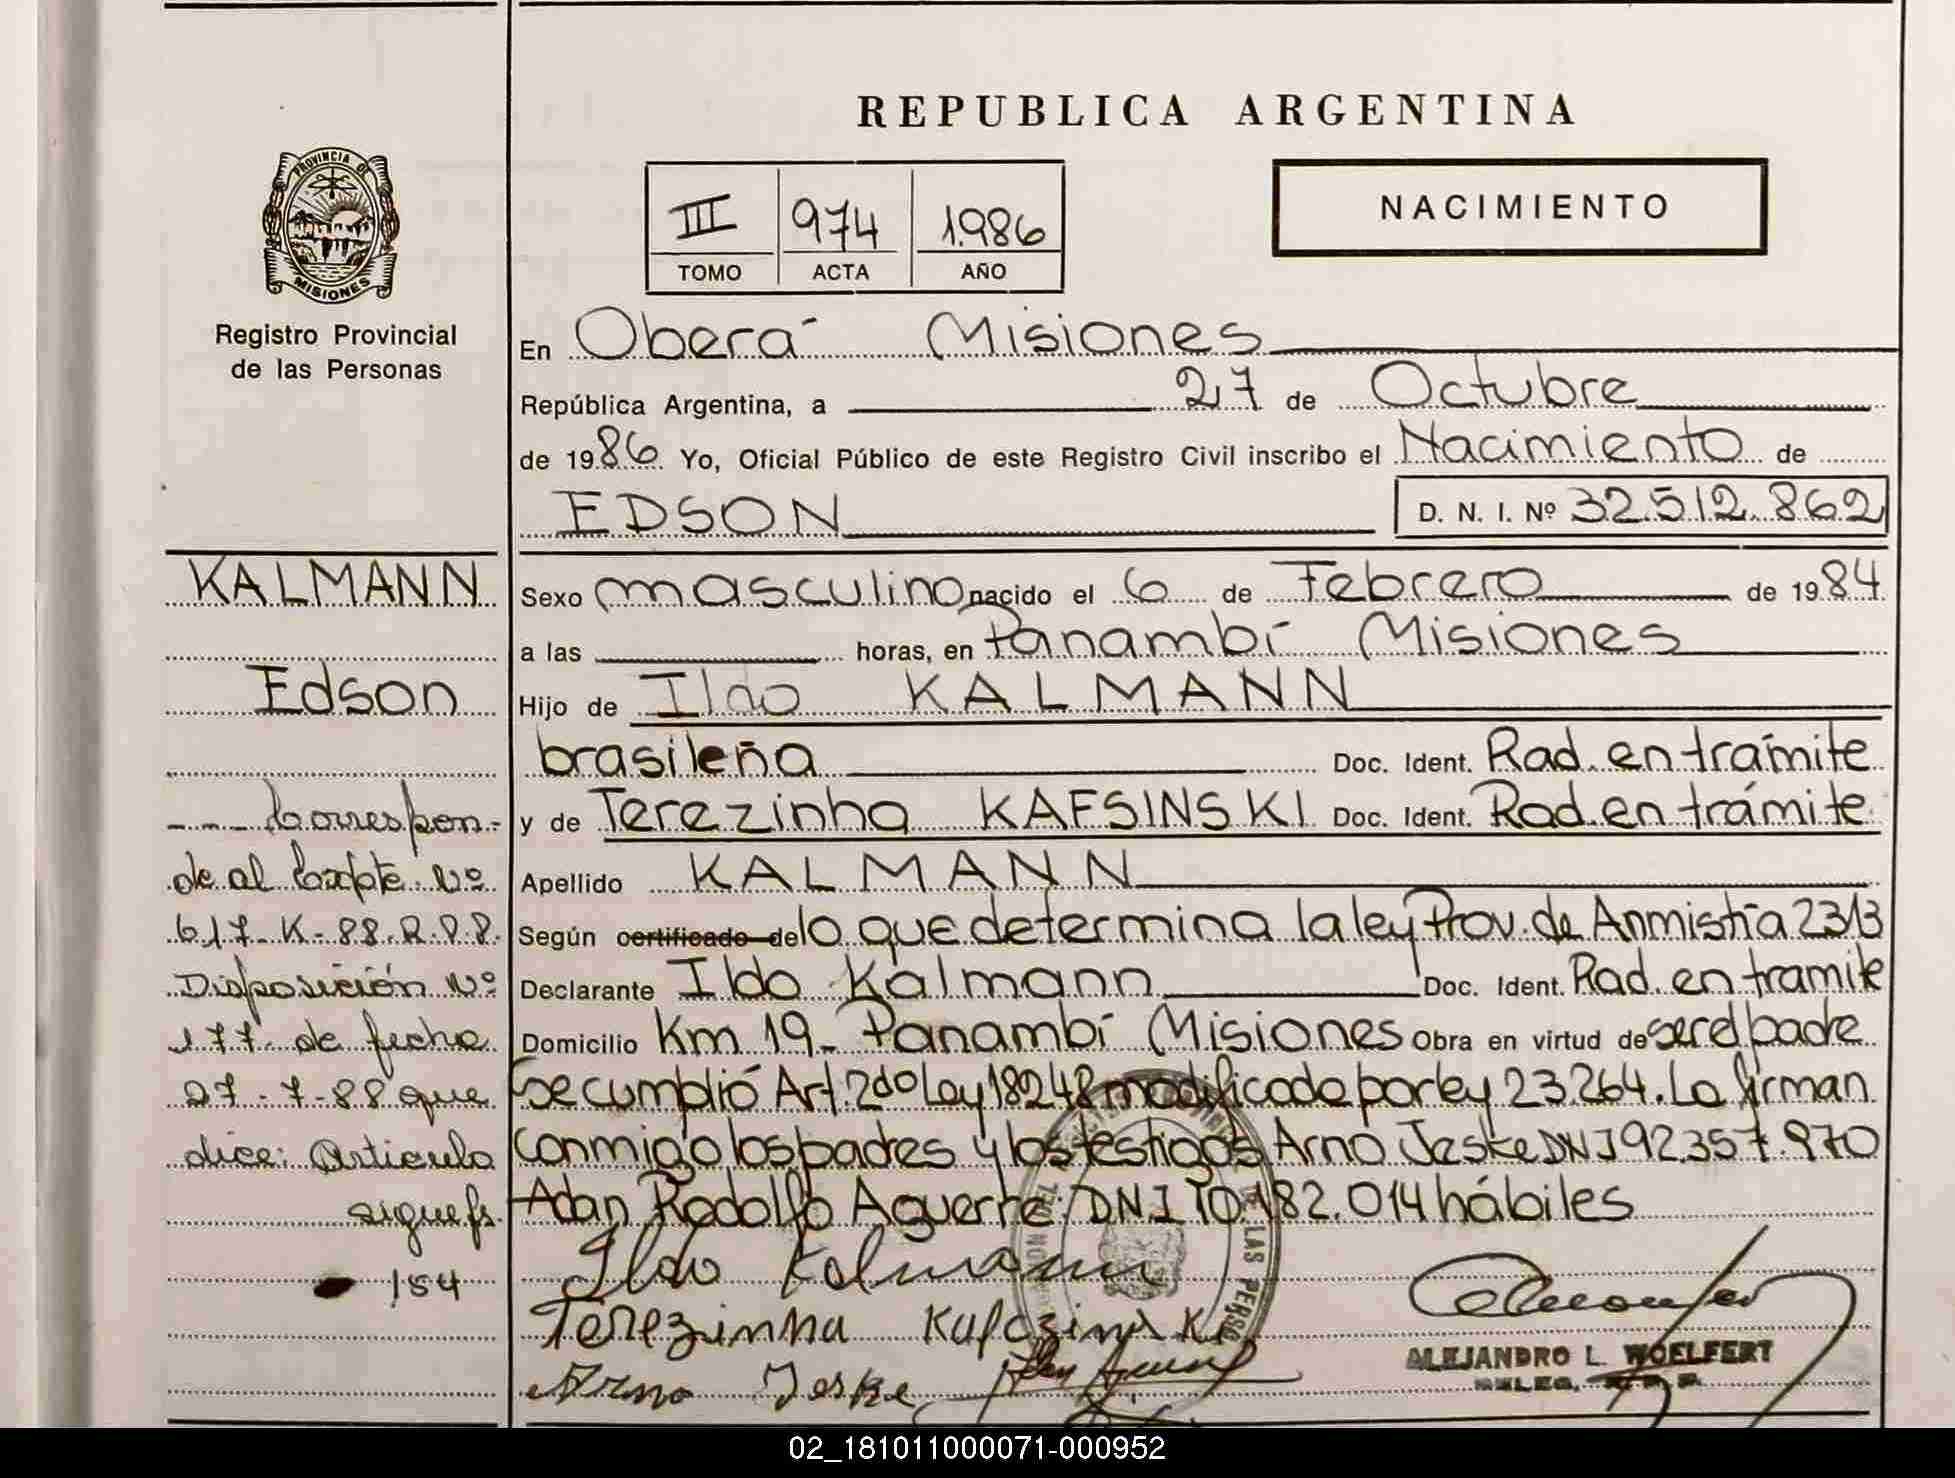 REPUBLICA ARGENTINA
PROVINCIA DE
MISIONES
Registro Provincial
de las Personas
III 974 1.986
TOMO ACTA AÑO
NACIMIENTO
En Oberá Misiones
República Argentina, a 27 de Octubre
de 1986 Yo, Oficial Público de este Registro Civil inscribo el Nacimiento de
EDSON D. N. I. Nº 32.512.862
Sexo masculino nacido el 6 de Febrero de 1984
a las horas, en Panambí Misiones
Hijo de Ildo KALMANN
brasileña Doc. Ident. Rad. en trámite
y de Terezinha KAFSINSKI Doc. Ident. Rad. en trámite
Apellido KALMANN
Según certificado de lo que determina la ley Prov. de Anmistía 2313
Declarante Ildo Kalmann Doc. Ident. Rad. en tramite
Domicilio Km 19- Panambí Misiones Obra en virtud de ser el padre
Se cumplió Art. 2do Ley 18248 modificada por ley 23.264. La firman
conmigo los padres y los testigos Arno Jeske DNI 92.357.970
Adan Rodolfo Aguerre: DNI 10.182.014 hábiles
Ildo Kalmann
Terezinha Kafczinski
Arno Jeske
ALEJANDRO L. WOELFERT
DELEG. R. P. P.
KALMANN
Edson
--- Correspon-
de al Expte. Nº
617-K-88.R.P.P.
Disposición Nº
177 de fecha
27-7-88 que
dice: Artículo
sigue fs.
184
02_181011000071-000952